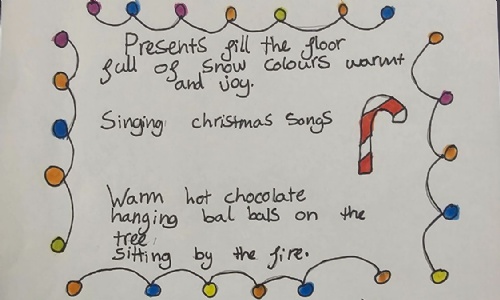 Presents fill the floor
full of snow colours warmt
and joy.
Singing christmas songs
Warm hot chocolate
hanging bal bals on the
tree.
Sitting by the fire.